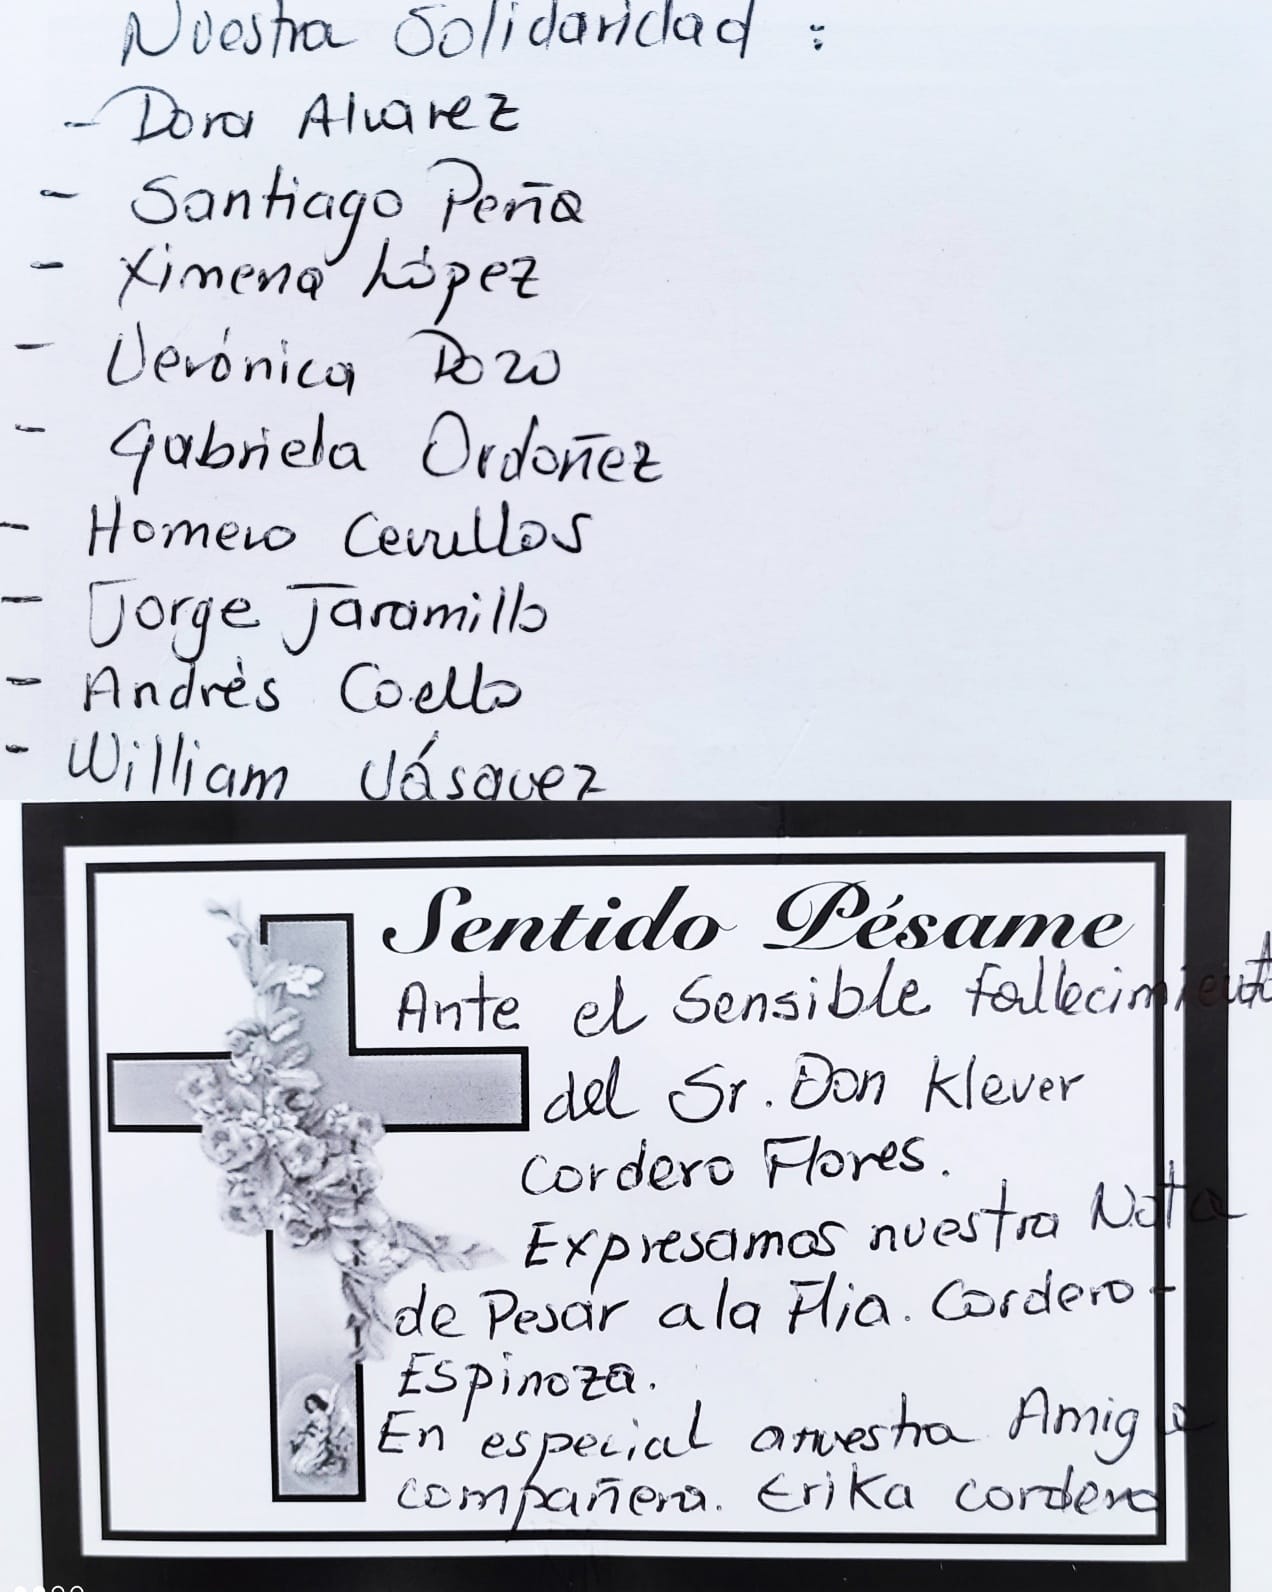 Nuestra Solidaridad :
- Dora Alvarez
- Santiago Peña
- Ximena López
- Verónica Pozo
- Gabriela Ordoñez
- Homero Cevallos
- Jorge Jaramillo
- Andrés Coello
- William Vásquez
Sentido Pésame
Ante el Sensible fallecimiento
del Sr. Don Klever
Cordero Flores.
Expresamos nuestra Nota
de Pesar a la Flia. Cordero -
Espinoza.
En especial a nuestra Amiga
compañera. Erika Cordero